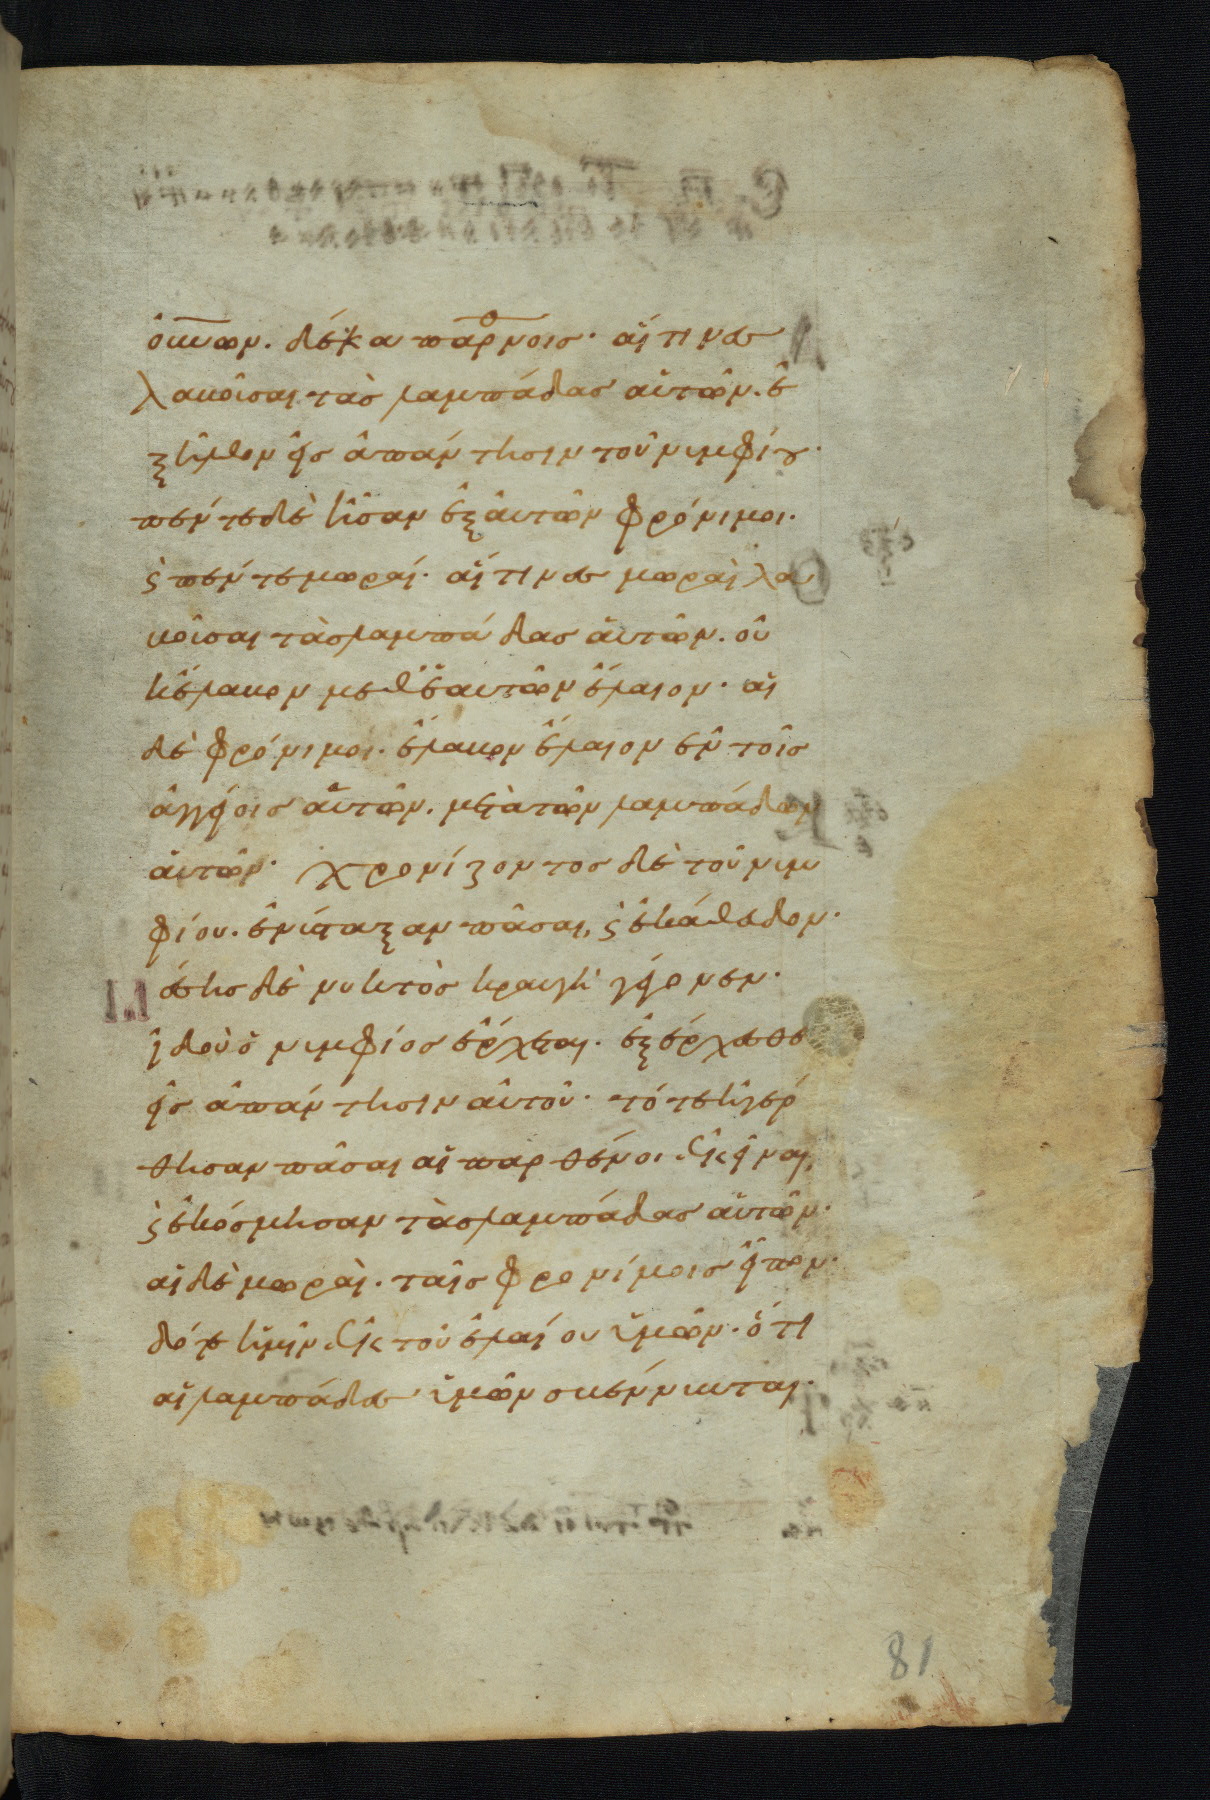 ὀυνῶν. δέκα παρνοις· αἵτινες
λαβοῦσαι τὰσ λαμπάδασ αὐτῶν. ἐ
ξῆλθον εἰσ ἀπάντησιν τοῦ νυμφίου·
πέντε δὲ ἦσαν ἐξ αὐτῶν φρόνιμοι.
ϛ πέντε μωραί· αἵτινες μωραὶ λα
βοῦσαι τὰσ λαμπάδασ αὐτῶν. οὐ
κ ἔλαβον μεθ ἑαυτῶν ἔλαιον· αἱ
δὲ φρόνιμοι. ἔλαβον ἔλαιον ἐν τοῖσ
ἀγγείοισ αὐτῶν. μετὰ τῶν λαμπάδων
αὐτῶν· χρονίζοντοσ δὲ τοῦ νυμ
φίου. ἐνύσταξαν πᾶσαι, ϛ ἐκάθεδον·
μέσης δὲ νυκτὸσ κραυγὴ γέγονεν·
ἰδοὺ ὁ νυμφίοσ ἔρχεται. ἐξέρχεσθε
εἰσ ἀπάντησιν αὐτοῦ· τότε ἠγέρ
θησαν πᾶσαι αἱ παρθένοι ἐκεῖναι,
ϛ ἐκόσμησαν τὰσ λαμπάδασ αὐτῶν·
αἱ δὲ μωραὶ. ταῖσ φρονίμοισ εἶπον·
δότε ἡμῖν ἐκ τοῦ ἐλαίου ὑμῶν. ὅτι
αἱ λαμπάδες ὑμῶν σβέννυνται·
81